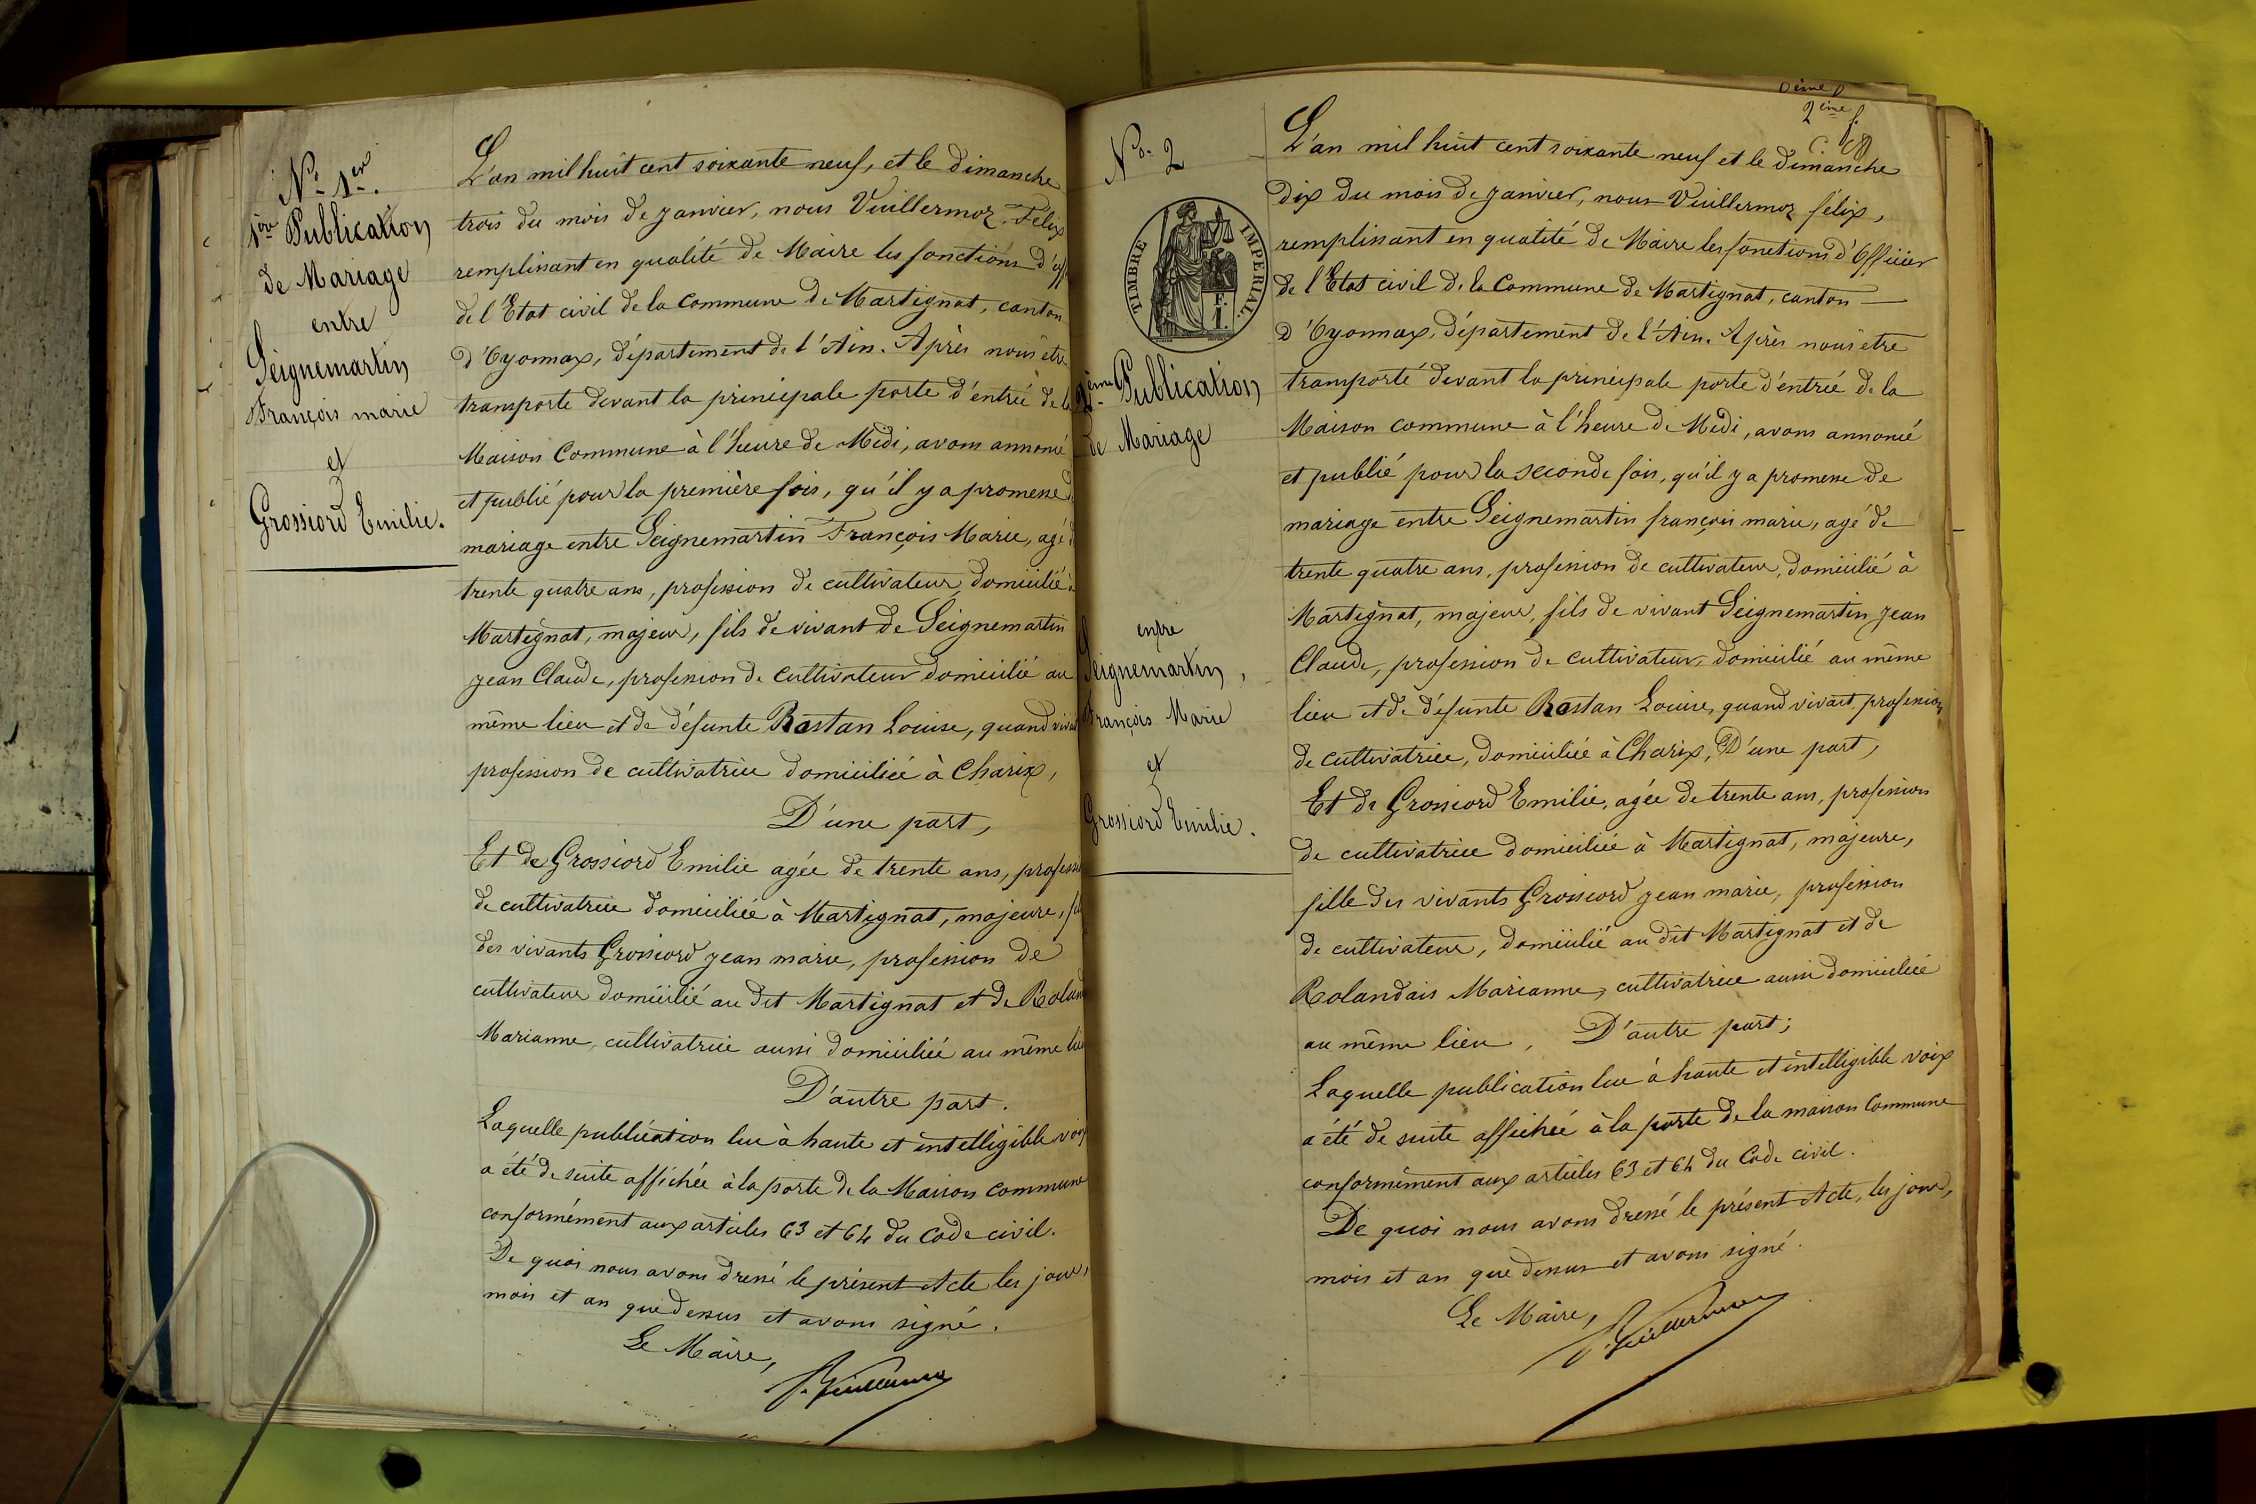 N.° 1.er
1ère Publication
de Mariage
entre
Seignemartin
François marie
et
Grossiord Emilie.
L'an mil huit cent soixante neuf, et le dimanche
trois du mois de janvier, nous Vuillermoz Félix
remplissant en qualité de Maire les fonctions d'off
de l'Etat civil de la Commune de Martignat, canton
d'Oyonnax, département de l'Ain. Après nous être
transporté devant la principale porte d'entrée de la
Maison Commune à l'heure de Midi, avons annoncé
et publié pour la première fois, qu'il y a promesse d
mariage entre Seignemartin François Marie, agé d
trente quatre ans, profession de cultivateur, domicilié à
Martignat, majeur, fils de vivant de Seignemartin
jean Claude, profession de cultivateur domicilié au
même lieu et de défunte Rostan Louise, quand vivait
profession de cultivatrice domiciliée à Charix,
D'une part,
Et de Grossiord Emilie agée de trente ans, professi
de cultivatrice domiciliée à Martignat, majeure, fil
des vivants Grossiord jean marie, profession de
cultivateur domicilié au dit Martignat et de Roland
Marianne, cultivatrice aussi domiciliée au même lieu
D'autre part.
Laquelle publication lue à haute et intelligible voix
a été de suite affichée à la porte de la Maison commune
conformément aux articles 63 et 64 du Code civil.
De quoi nous avons dressé le présent Acte les jour,
mois et an que dessus et avons signé.
Le Maire,
F. Vuillermoz
2ème f.
N.° 2
TIMBRE IMPERIAL.
F. I.
2ème Publication
de Mariage
entre
Seignemartin,
François Marie
et
Grossiord Emilie.
L'an mil huit cent soixante neuf et le dimanche
dix du mois de janvier, nous Vuillermoz félix,
remplissant en qualité de Maire les fonctions d'Officier
de l'Etat civil de la Commune de Martignat, canton
d'Oyonnax, département de l'Ain. Après nous être
transporté devant la principale porte d'entrée de la
Maison commune à l'heure de Midi, avons annoncé
et publié pour la seconde fois, qu'il y a promesse de
mariage entre Seignemartin françois marie, agé de
trente quatre ans, profession de cultivateur, domicilié à
Martignat, majeur, fils de vivant Seignemartin jean
Claude, profession de cultivateur, domicilié au même
lieu et de défunte Rostan Louise, quand vivait, profession
de cultivatrice, domiciliée à Charix, D'une part,
Et de Grossiord Emilie, agée de trente ans, profession
de cultivatrice domiciliée à Martignat, majeure,
fille des vivants Grossiord jean marie, profession
de cultivateur, domicilié au dit Martignat et de
Rolandais Marianne, cultivatrice aussi domiciliée
au même lieu, D'autre part;
Laquelle publication lue à haute et intelligible voix
a été de suite affichée à la porte de la maison Commune
conformément aux articles 63 et 64 du Code civil.
De quoi nous avons dressé le présent Acte, les jour,
mois et an que dessus et avons signé.
Le Maire,
F. Vuillermoz